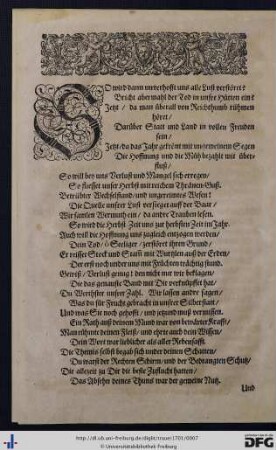 SO wird dann unverhofft uns alle Lust verstöret?
Bricht abermahl der Tod in unsre Hütten ein?
Jetzt / da man überall von Reichthumb rühmen
höret /
Darüber Statt und Land in vollen Freuden
sein /
Jetzt / da das Jahr gekrönt mit ungemeinem Segen
Die Hoffnung und die Müh bezahlt mit über-
fluß /
So will bey uns Verlust und Mangel sich erregen /
So fliesset unser Herbst mit reichem Thränen-Guß.
Betrübter Wechselstand / und ungereimtes Wesen!
Die Quelle unsrer Lust versieget auf der Baar /
Wir samlen Wermuth ein / da andre Trauben lesen.
So wird die Herbst-Zeit uns zur herbsten Zeit im Jahr.
Auch will die Hoffnung uns zugleich entzogen werden /
Dein Tod / ô Seeliger / zerstöret ihren Grund /
Er reisset Stock und Staff mit Wurtzeln aus der Erden /
Der erst noch unter uns mit Früchten trächtig stund.
Gewiß / Verlust genug! den nicht nur wir beklagen /
Die das genauste Band mit Dir verknüpffet hat /
Du Werthster unser Zahl. Wir lassen andre sagen /
Was du für Frucht gebracht in unsrer Silberstatt /
Und was Sie noch gehofft / und jetzund muß vermissen.
Ein Rath aus deinem Mund war von bewärter Krafft /
Man rühmte deinen Fleiß / und ehrte auch dein Wissen /
Dein Wort war lieblicher als aller Rebensafft.
Die Themis selbst begab sich unter deinen Schatten /
Du warst der Rechten Schirm / und der Bedrängten Schutz /
Die allezeit zu Dir die beste Zuflucht hatten /
Das Absehn deines Thuns war der gemeine Nutz.
Und
http://dl.ub.uni-freiburg.de/diglit/trauer1701/0007
© Universitätsbibliothek Freiburg
DFG